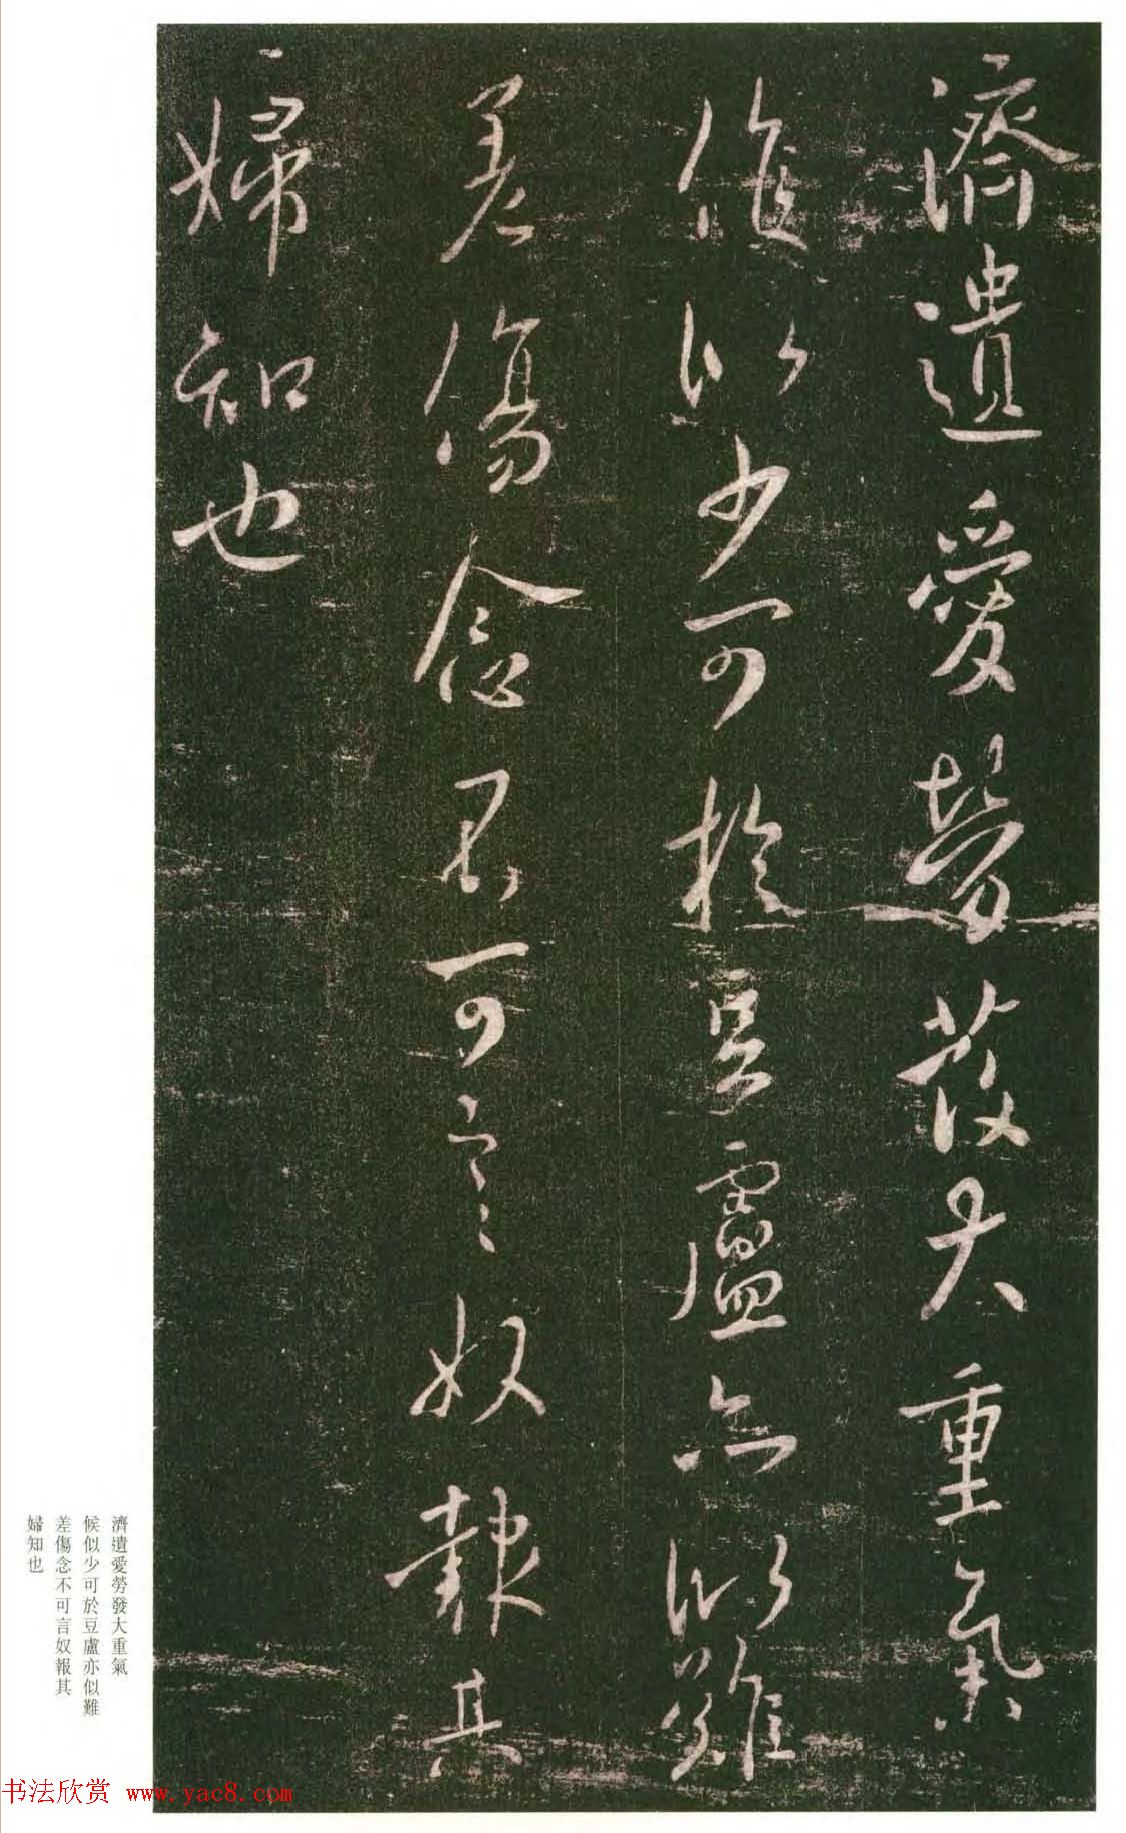 濟遺愛勞發大重氣
候似少可於豆盧亦似難
差傷念不可言奴報其
婦知也
濟遺愛勞發大重氣
候似少可於豆盧亦似難
差傷念不可言奴報其
婦知也
书法欣赏 www.yac8.com